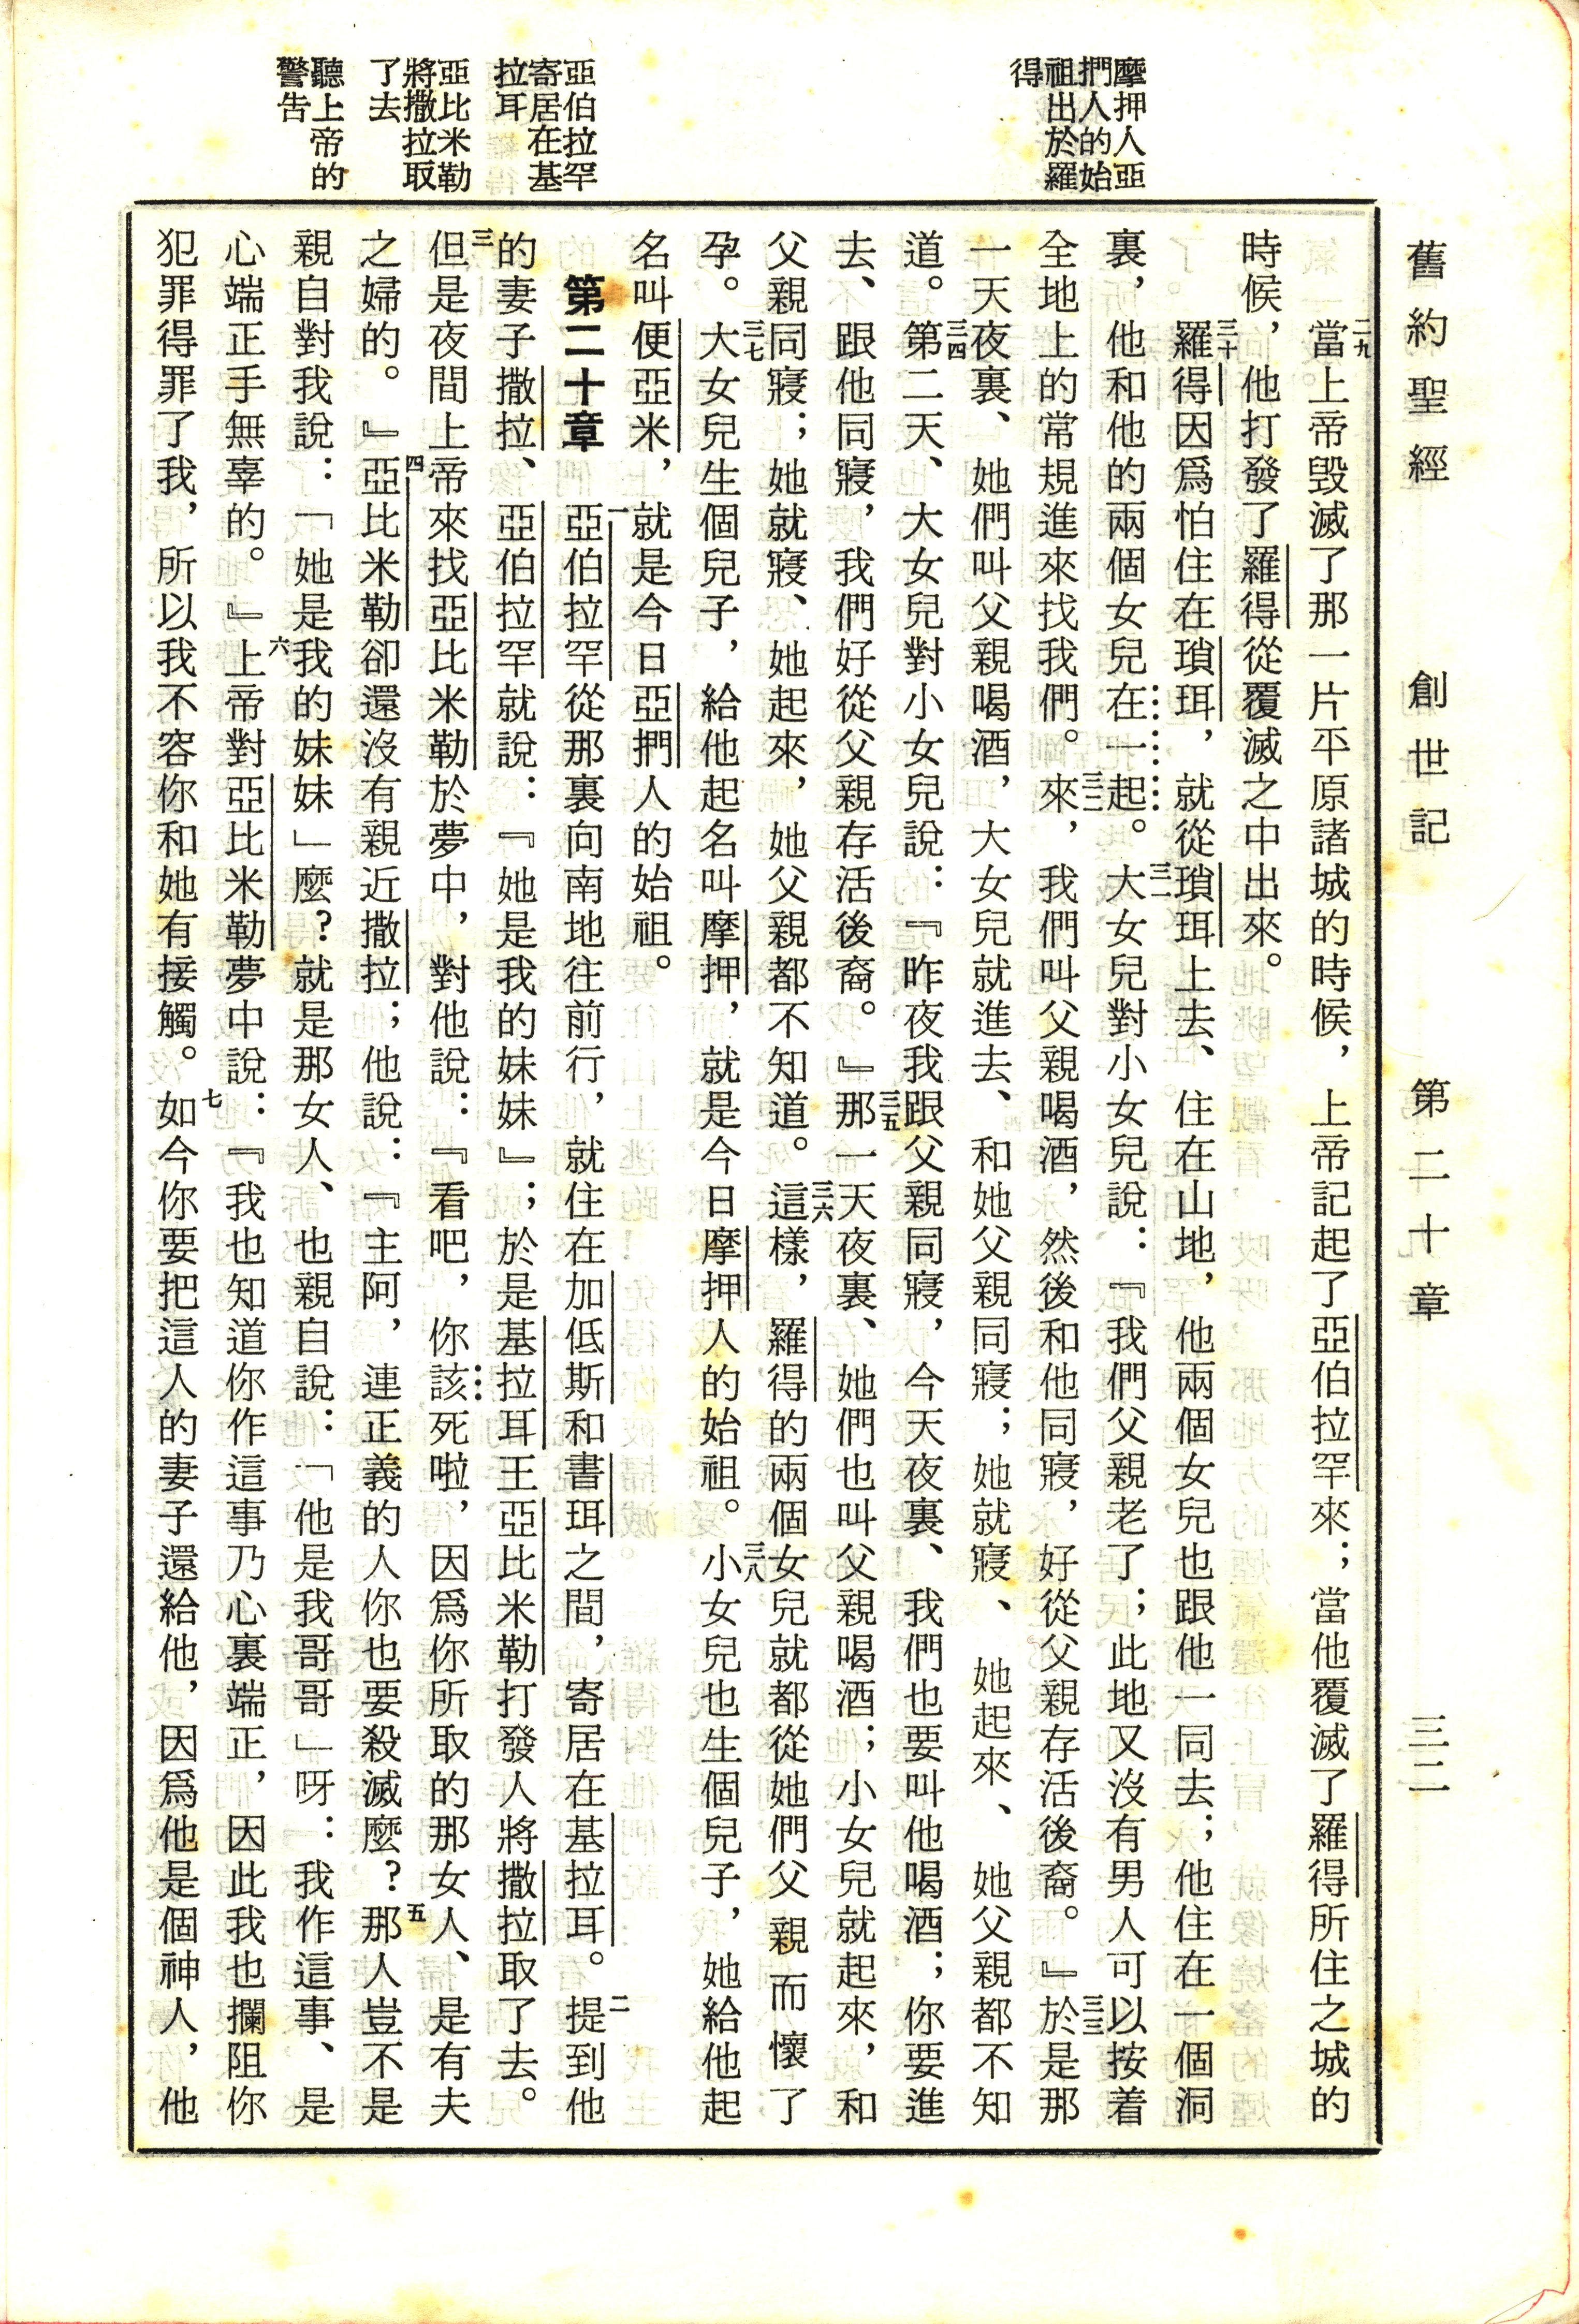 舊約聖經 創世記 第二十章 三二
摩押人亞
捫人的始
祖出於羅
得
亞伯拉罕
寄居在基
拉耳
亞比米勒
將撒拉取
了去
聽上帝的
警告
二九當上帝毀滅了那一片平原諸城的時候，上帝記起了亞伯拉罕來；當他覆滅了羅得所住之城的
時候，他打發了羅得從覆滅之中出來。
三十羅得因爲怕住在瑣珥，就從瑣珥上去、住在山地，他兩個女兒也跟他一同去；他住在一個洞
裏，他和他的兩個女兒在一起。三一大女兒對小女兒說：『我們父親老了；此地又沒有男人可以按着
全地上的常規進來找我們。三二來，我們叫父親喝酒，然後和他同寢，好從父親存活後裔。』三三於是那
一天夜裏、她們叫父親喝酒，大女兒就進去、和她父親同寢；她就寢、她起來、她父親都不知
道。三四第二天、大女兒對小女兒說：『昨夜我跟父親同寢，今天夜裏、我們也要叫他喝酒；你要進
去、跟他同寢，我們好從父親存活後裔。』三五那一天夜裏、她們也叫父親喝酒；小女兒就起來，和
父親同寢；她就寢、她起來，她父親都不知道。三六這樣，羅得的兩個女兒就都從她們父親而懷了
孕。三七大女兒生個兒子，給他起名叫摩押，就是今日摩押人的始祖。三八小女兒也生個兒子，她給他起
名叫便亞米，就是今日亞捫人的始祖。
第二十章 一亞伯拉罕從那裏向南地往前行，就住在加低斯和書珥之間，寄居在基拉耳。二提到他
的妻子撒拉、亞伯拉罕就說：『她是我的妹妹』；於是基拉耳王亞比米勒打發人將撒拉取了去。
三但是夜間上帝來找亞比米勒於夢中，對他說：『看吧，你該死啦，因爲你所取的那女人、是有夫
之婦的。』四亞比米勒卻還沒有親近撒拉；他說：『主阿，連正義的人你也要殺滅麼？五那人豈不是
親自對我說：「她是我的妹妹」麼？就是那女人、也親自說：「他是我哥哥」呀：我作這事、是
心端正手無辜的。』六上帝對亞比米勒夢中說：『我也知道你作這事乃心裏端正，因此我也攔阻你
犯罪得罪了我，所以我不容你和她有接觸。七如今你要把這人的妻子還給他，因爲他是個神人，他